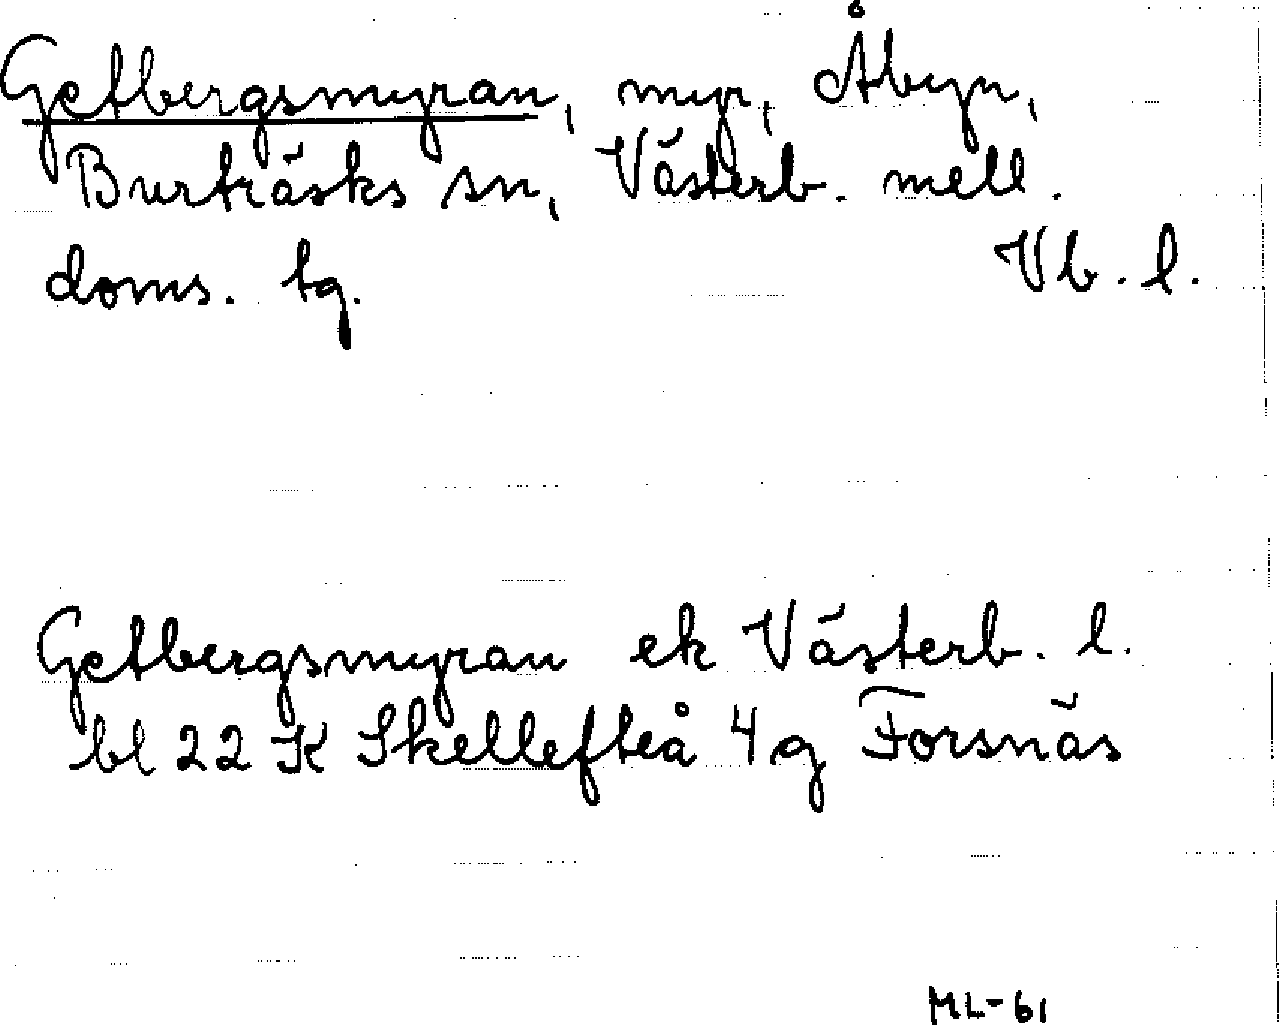 Getbergsmyran, myr, Åbyn,
Burträsks sn, Västerb. mell.
doms. tg. Vb. l.
Getbergsmyran ek Västerb. l.
bl 22 K Skellefteå 4 g Forsnäs
ML-61